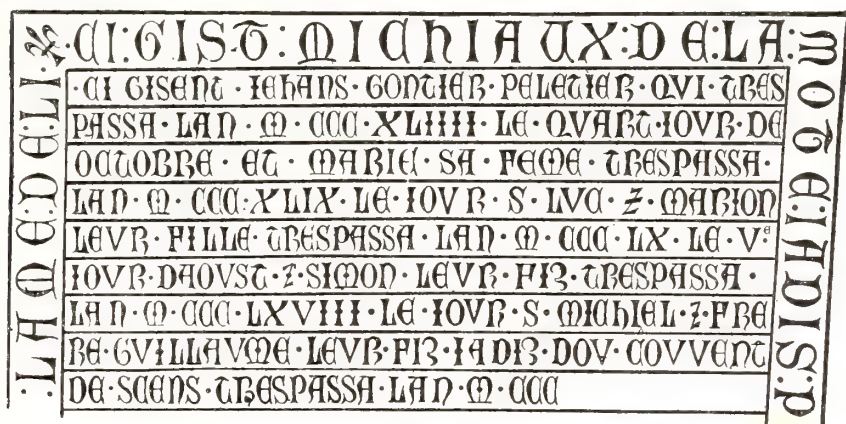 ·CI:GIST:MICHIAUX:DE:LA:
MOTE:IADIS:P
·CI GISENT·IEHANS·GONTIER·PELETIER·QVI·TRES
PASSA·LAN·M·CCC·XLIIII·LE·QVART·IOVR·DE
OCTOBRE·ET·MARIE·SA·FEME·TRESPASSA·
LAN·M·CCC:XLIX·LE·IOVR·S·LVC·Z·MARION
LEVR·FILLE·TRESPASSA·LAN·M·CCC·LX·LE·Vᵉ
IOVR·DAOVST·Z·SIMON·LEVR·FIZ·TRESPASSA·
LAN·M·CCC·LXVIII·LE·IOVR·S·MICHIEL·Z·FRE
RE·GVILLAVME·LEVR·FIZ·IADIZ·DOV·COVVENT
DE·SCENS·TRESPASSA·LAN·M·CCC
:LAME:DE:LI·